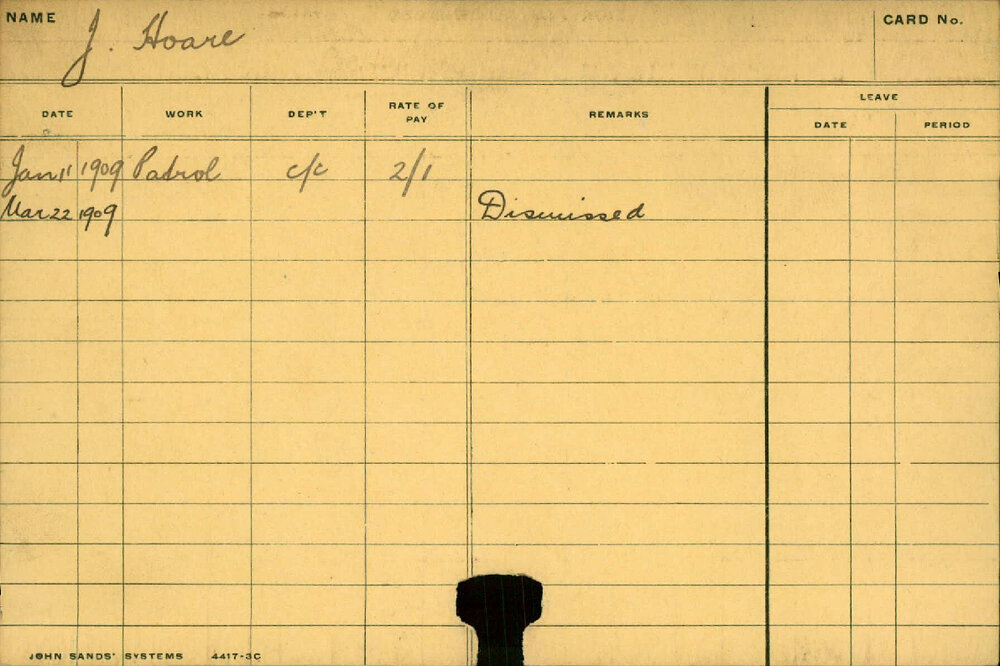 NAME J. Hoare CARD No.
LEAVE
DATE WORK DEP'T RATE OF PAY REMARKS DATE PERIOD
Jan 11 1909 Patrol c/c 2/1
Mar 22 1909 Dismissed
JOHN SANDS' SYSTEMS 4417-3C